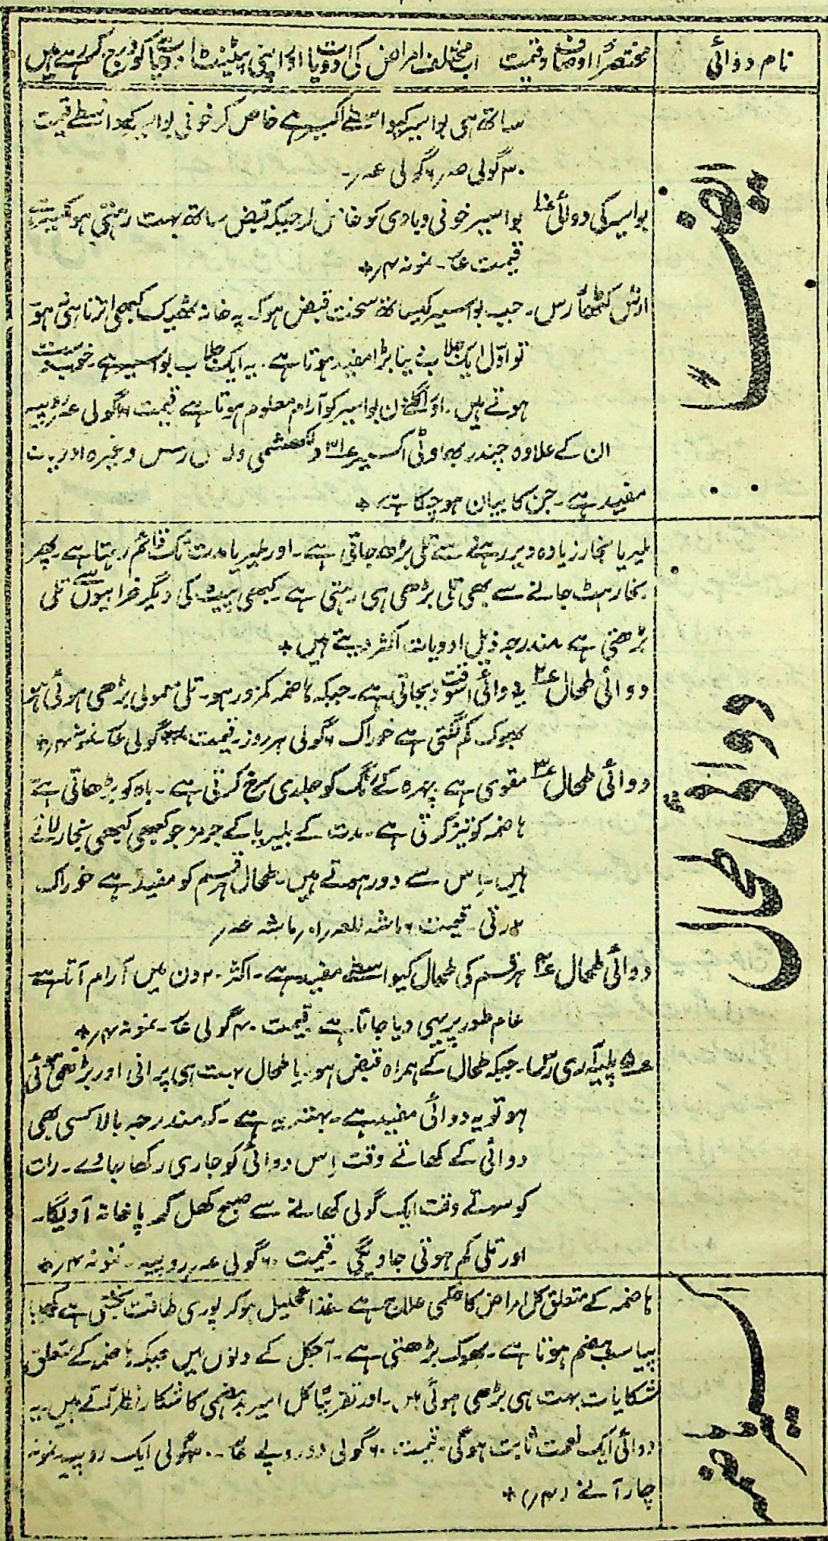 نام دوائی
مختصراً اوصاف و قیمت اب مختلف امراض کی ادویات اور اپنی پیٹینٹ ادویات کو درج کر رہے ہیں
ایضاً
ساتھ ہی بواسیر کیواسطے اکسیر ہے خاص کر خونی بواسیر کے واسطے قیمت
۳۰ گولی عہ/ ۶ گولی عہ/-
بواسیر کی دوائی بواسیر خونی و بادی کو خاص کر جبکہ قبض ساتھ بہت رہتی ہو مفید ہے
قیمت عہ- نمونہ ۴/+
ارش کٹھار رس۔ جب بواسیر کیساتھ سخت قبض ہو کہ پہ خانہ ٹھیک کبھی اترتا ہی نہ ہو
تو اول ایک جلاب دینا بڑا مفید ہوتا ہے۔ یہ ایک جلاب بواسیر ہے۔ خوب دست
ہوتے ہیں۔ اور اگلے دن بواسیر کو آرام معلوم ہوتا ہے قیمت گولی عہ روپیہ
ان کے علاوہ چندر پربھاوٹی اکسیر و رس وغیرہ ادویات
مفید ہے۔ جن کا بیان ہو چکا ہے +
دوائی طحال
ملیریا بخار زیادہ دیر رہنے سے تلی بڑھ جاتی ہے۔ اور ملیریا مدت تک قائم رہتا ہے۔ پھر
بخار ہٹ جانے سے بھی تلی بڑھی ہی رہتی ہے۔ کبھی پیٹ کی دیگر خرابیوں سے تلی
بڑھتی ہے مندرجہ ذیل ادویات اکثر دیتے ہیں +
دوائی طحال ۲ یہ دوائی اسوقت دیجاتی ہے۔ جبکہ ہاضمہ کمزور ہو۔ تلی معمولی بڑھی ہوئی ہو
بھوک کم لگتی ہے خوراک ۶ گولی ہر روز۔ قیمت گولی عہ نمونہ ۴/+
دوائی طحال ۳ مقوی ہے چہرہ کے رنگ کو جلدی سرخ کرتی ہے۔ باہ کو بڑھاتی ہے
ہاضمہ کو تیز کرتی ہے۔ مدت کے ملیریا کے جرمز جو کبھی کبھی بخار لاتے
ہیں۔ اس سے دور ہوتے ہیں۔ طحال ہر قسم کو مفید ہے خوراک
۴ رتی۔ قیمت ۶ ماشہ ماشہ عہ/
دوائی طحال ۴ ہر قسم کی طحال کیواسطے مفید ہے۔ اکثر ۲۰ دن میں آرام آتا ہے
عام طور پر یہی دیا جاتا ہے قیمت ۴۰ گولی عہ۔ نمونہ ۴/+
۵ پلیہاری رس۔ جبکہ طحال کے ہمراہ قبض ہو۔ یا طحال بہت ہی پرانی اور بڑھی ہوئی
ہو تو یہ دوائی مفید ہے۔ بہتر یہ ہے۔ کہ مندرجہ بالا کسی بھی
دوائی کے کھاتے وقت اس دوائی کو جاری رکھا جاوے۔ رات
کو سوتے وقت ایک گولی کھانے سے صبح کھل کر پاخانہ آویگا۔
اور تلی کم ہوتی جاویگی۔ قیمت ۶۰ گولی عہ روپیہ۔ نمونہ ۴/+
اکسیر ہاضمہ
ہاضمہ کے متعلق کل امراض کا حکمی علاج ہے۔ غذا تحلیل ہو کر پوری طاقت بخشتی ہے کھایا
پیا سب ہضم ہوتا ہے۔ بھوک بڑھتی ہے۔ آجکل کے دنوں میں جبکہ ہاضمہ کے متعلق
شکایات بہت ہی بڑھی ہوئی ہیں۔ اور تقریباً کل امیر بدہضمی کا شکار نظر آتے ہیں۔ یہ
دوائی ایک نعمت ثابت ہوگی۔ قیمت ۶۰ گولی دو روپے عہ۔ ۳۰ گولی ایک روپیہ نمونہ
چار آنے (۴/) +